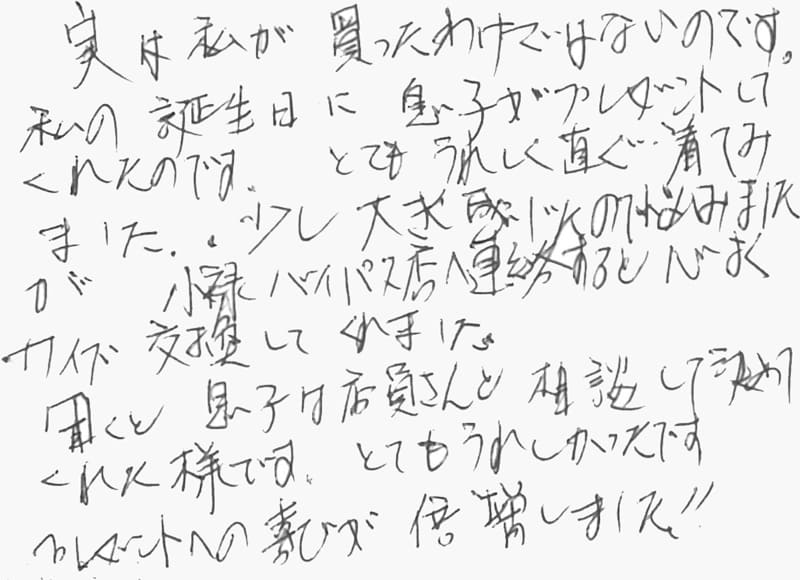 実は私が買ったわけではないのです。
私の誕生日に息子がプレゼントして
くれたのです。とてもうれしく直ぐ着てみ
ました。少し大き感じたので悩みました
が 小禄バイパス店へ連絡すると心よく
サイズ交換してくれました。
聞くと息子は店員さんと相談して決めて
くれた様です。とてもうれしかったです
プレゼントへの喜びが倍増しました!!